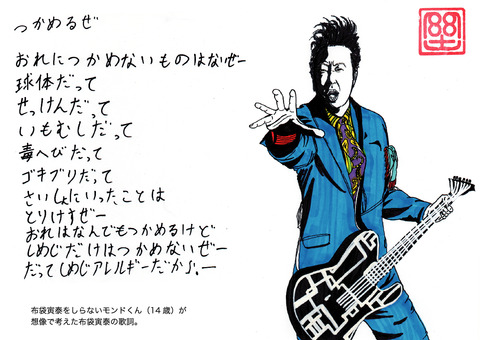 つかめるぜ
おれにつかめないものはなぜー
球体だって
せっけんだって
いもむしだって
毒へびだって
ゴキブリだって
さいしょにいったことは
とりけすぜー
おれはなんでもつかめるけど
しめじだけはつかめないぜー
だってしめじアレルギーだからー
布袋寅泰をしらないモンドくん（14歳）が
想像で考えた布袋寅泰の歌詞。